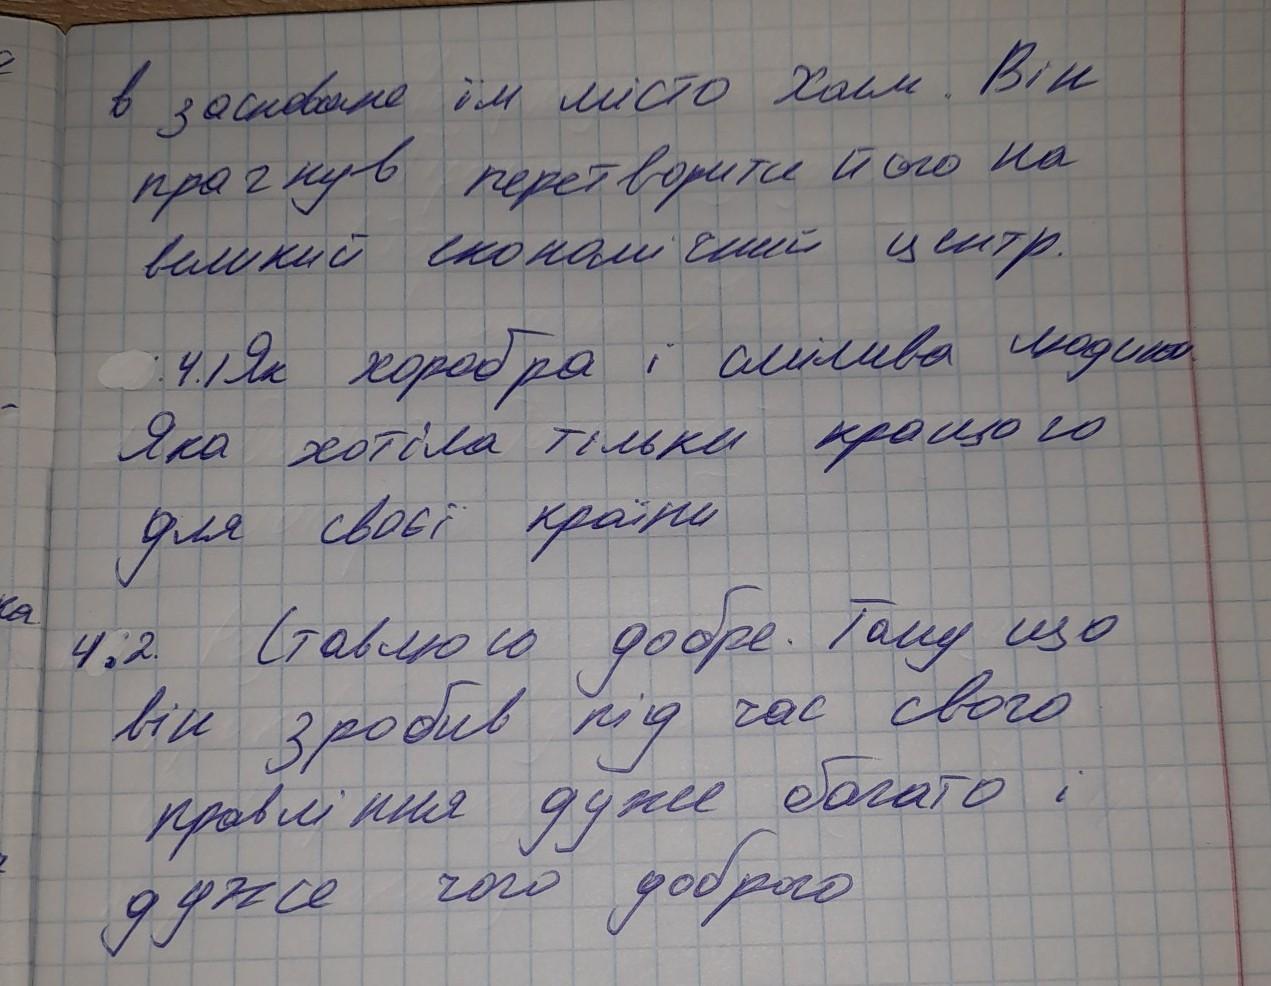 в засноване їм місто Холм. Він
прагнув перетворити його на
великий економічний центр.
4.1 Як хоробра і смілива людина
Яка хотіла тільки кращого
для своєї країни
4.2. Ставлюсю добре. Тому що
він зробив під час свого
правління дуже багато і
дуже чого доброго